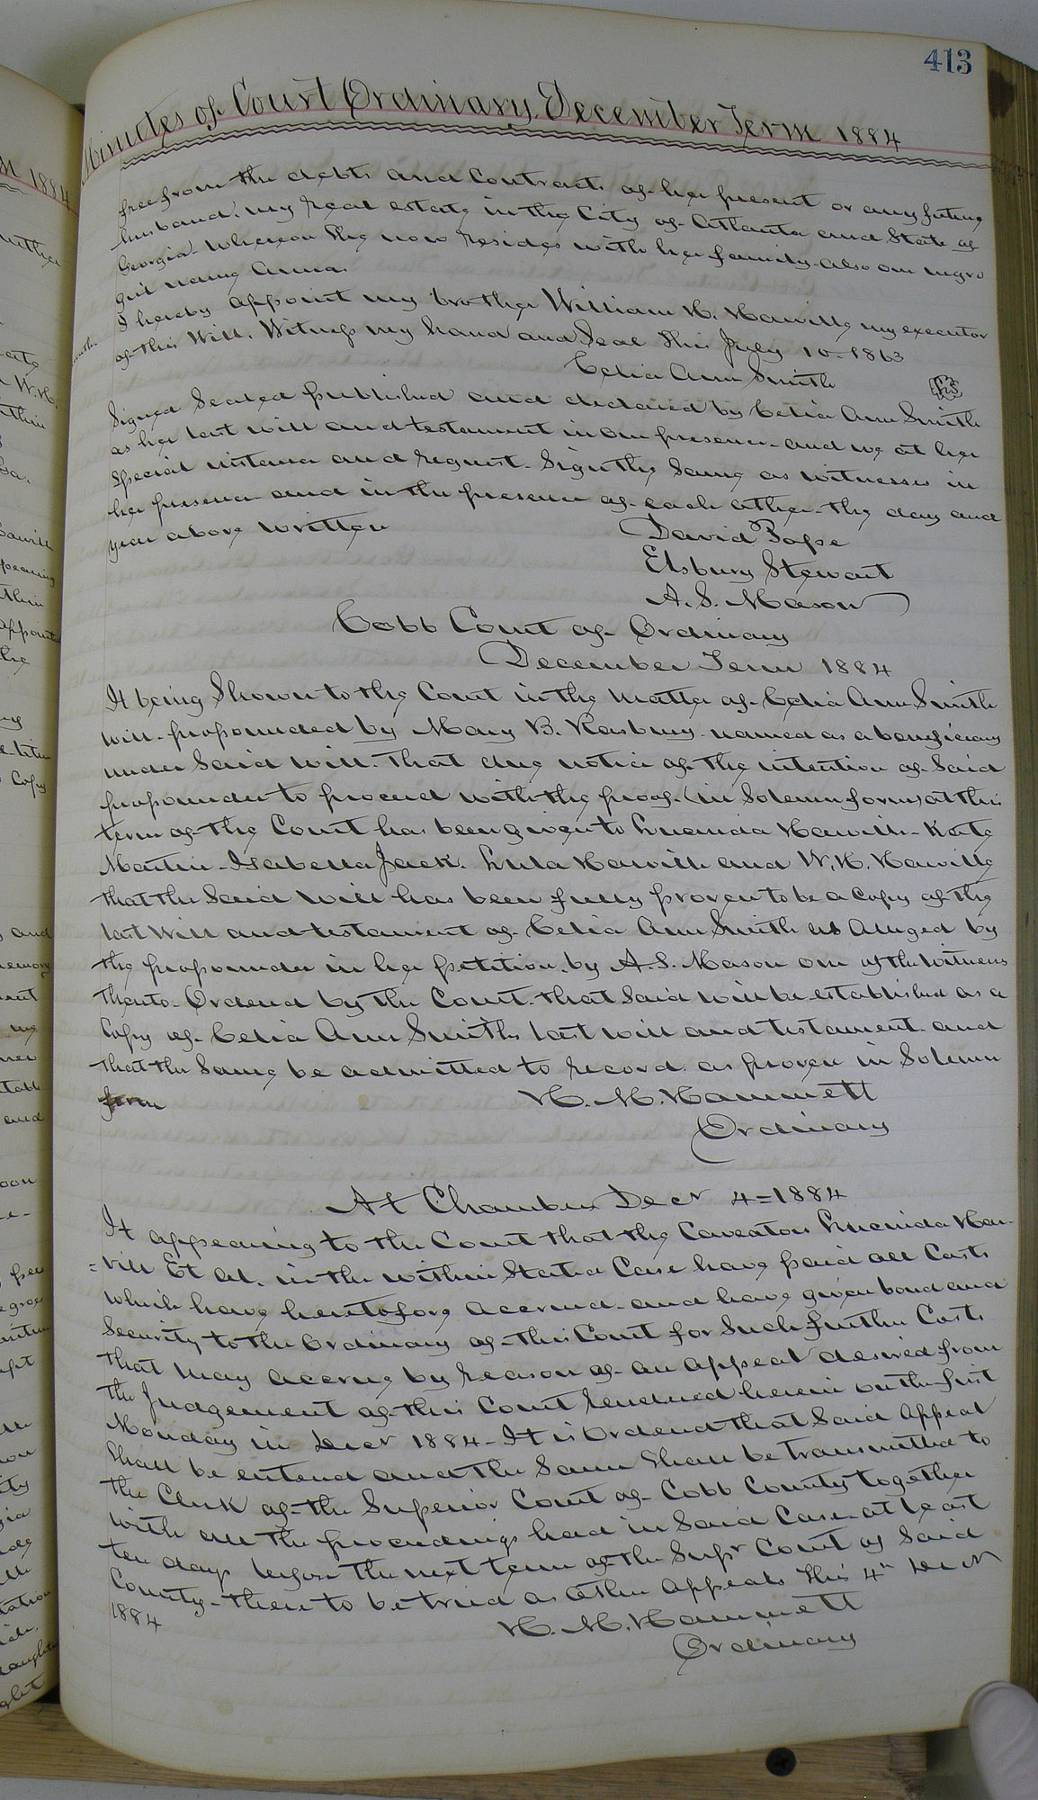 413
Minutes of Court Ordinary, December Term 1884
free from the debts and contracts of her present or any future
husband. my real estate in the City of Atlanta and State of
Georgia whereon she now resides with her family. also one negro
girl name Anna.
I hereby appoint my brother William H. Haville my executor
of this Will. Witness my hand and Seal this July 10-1863
Celia Ann Smith
Signed Sealed published and declared by Celia Ann Smith
as her last will and testament in our presence and we at her
special instance and request. Sign the same as witnesses in
her presence and in the presence of each other the day and
year above written
David Pope
Elsbury Stewart
A. S. Mason
Cobb Court of Ordinary
December Term 1884
It being Shown to the Court in the matter of Celia Ann Smith
will. propounded by Mary B. named as a beneficiary
under Said will. that due notice of the intention of Said
propounder to proceed with the proof (in Solemn form) at this
term of the Court has been given to Lucinda Havill- Kate
Martin- Isabella Jack. Lula Havill and W. H. Haville
that the Said Will has been fully proven to be a copy of the
last Will and testament of Celia Ann Smith as alleged by
the propounder in her petition by A. S. Mason one of the witness
thereto. Ordered by the Court. that Said will be established as a
Copy of Celia Ann Smiths last will and testament and
that the Same be admitted to record as proven in Solemn
form
H. M. Hammett
Ordinary
At Chambers Decr 4=1884
It appearing to the Court that the Caveators Lucinda Ha-
=vill Et al. in the within Stated Case have paid all Costs
which have heretofore accrued. and have given bond and
Security to the Ordinary of this Court for Such further Costs
that may accrue by reason of an appeal desired from
the Judgement of this Court rendered herein on the first
Monday in Decr 1884- It is Ordered that Said Appeal
Shall be entered and the Same Shall be transmitted to
the Clerk of the Superior Court of Cobb County together
with all the proceedings had in Said Case at least
ten days before the next term of the Supr Court of Said
County- there to be tried as other Appeals this 4th Decr
1884
H. M. Hammett
Ordinary